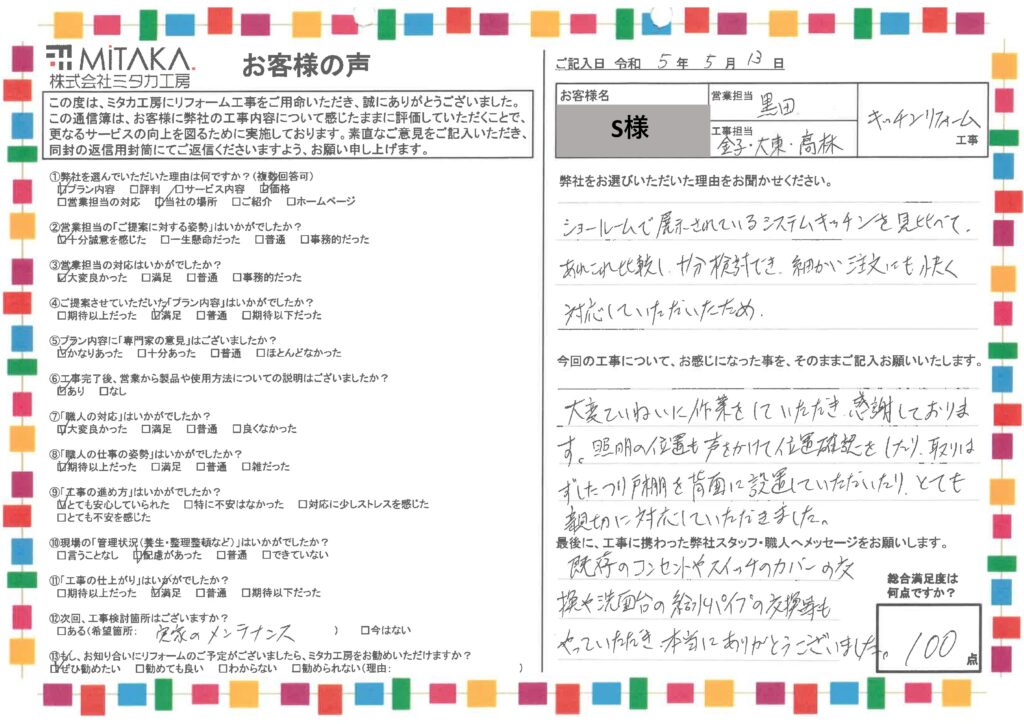 MiTAKA.
株式会社ミタカ工房
お客様の声
この度は、ミタカ工房にリフォーム工事をご用命いただき、誠にありがとうございました。
この通信簿は、お客様に弊社の工事内容について感じたままに評価していただくことで、
更なるサービスの向上を図るために実施しております。素直なご意見をご記入いただき、
同封の返信用封筒にてご返信くださいますよう、お願い申し上げます。
①弊社を選んでいただいた理由は何ですか?(複数回答可)
☑プラン内容 □評判 □サービス内容 ☑価格
□営業担当の対応 ☑当社の場所 □ご紹介 □ホームページ
②営業担当の「ご提案に対する姿勢」はいかがでしたか?
☑十分誠意を感じた □一生懸命だった □普通 □事務的だった
③営業担当の対応はいかがでしたか?
☑大変良かった □満足 □普通 □事務的だった
④ご提案させていただいた「プラン内容」はいかがでしたか?
□期待以上だった ☑満足 □普通 □期待以下だった
⑤プラン内容に「専門家の意見」はございましたか?
☑かなりあった □十分あった □普通 □ほとんどなかった
⑥工事完了後、営業から製品や使用方法についての説明はございましたか?
☑あり □なし
⑦「職人の対応」はいかがでしたか?
☑大変良かった □満足 □普通 □良くなかった
⑧「職人の仕事の姿勢」はいかがでしたか?
☑期待以上だった □満足 □普通 □雑だった
⑨「工事の進め方」はいかがでしたか?
☑とても安心していられた □特に不安はなかった □対応に少しストレスを感じた
□とても不安を感じた
⑩現場の「管理状況(養生・整理整頓など)」はいかがでしたか?
□言うことなし ☑配慮があった □普通 □できていない
⑪「工事の仕上がり」はいかがでしたか?
□期待以上だった ☑満足 □普通 □期待以下だった
⑫次回、工事検討箇所はございますか?
□ある(希望箇所: 実家のメンテナンス ) □今はない
⑬もし、お知り合いにリフォームのご予定がございましたら、ミタカ工房をお勧めいただけますか?
☑ぜひ勧めたい □勧めても良い □わからない □勧められない(理由: )
ご記入日 令和 5 年 5 月 13 日
お客様名
S様
営業担当 黒田
工事担当
金子・大東・高林
キッチンリフォーム
工事
弊社をお選びいただいた理由をお聞かせください。
ショールームで展示されているシステムキッチンを見比べて、
あれこれ比較し、十分検討でき、細かい注文にも快く
対応していただいたため.
今回の工事について、お感じになった事を、そのままご記入お願いいたします。
大変ていねいに作業をしていただき感謝しておりま
す。照明の位置も声をかけて位置確認をしたり、取りは
ずしたつり戸棚を背面に設置していただいたり、とても
親切に対応していただきました。
最後に、工事に携わった弊社スタッフ・職人へメッセージをお願いします。
既存のコンセントやスイッチのカバーの交
換や洗面台の給水パイプの交換等も
やっていただき、本当にありがとうございました。
総合満足度は
何点ですか?
100点